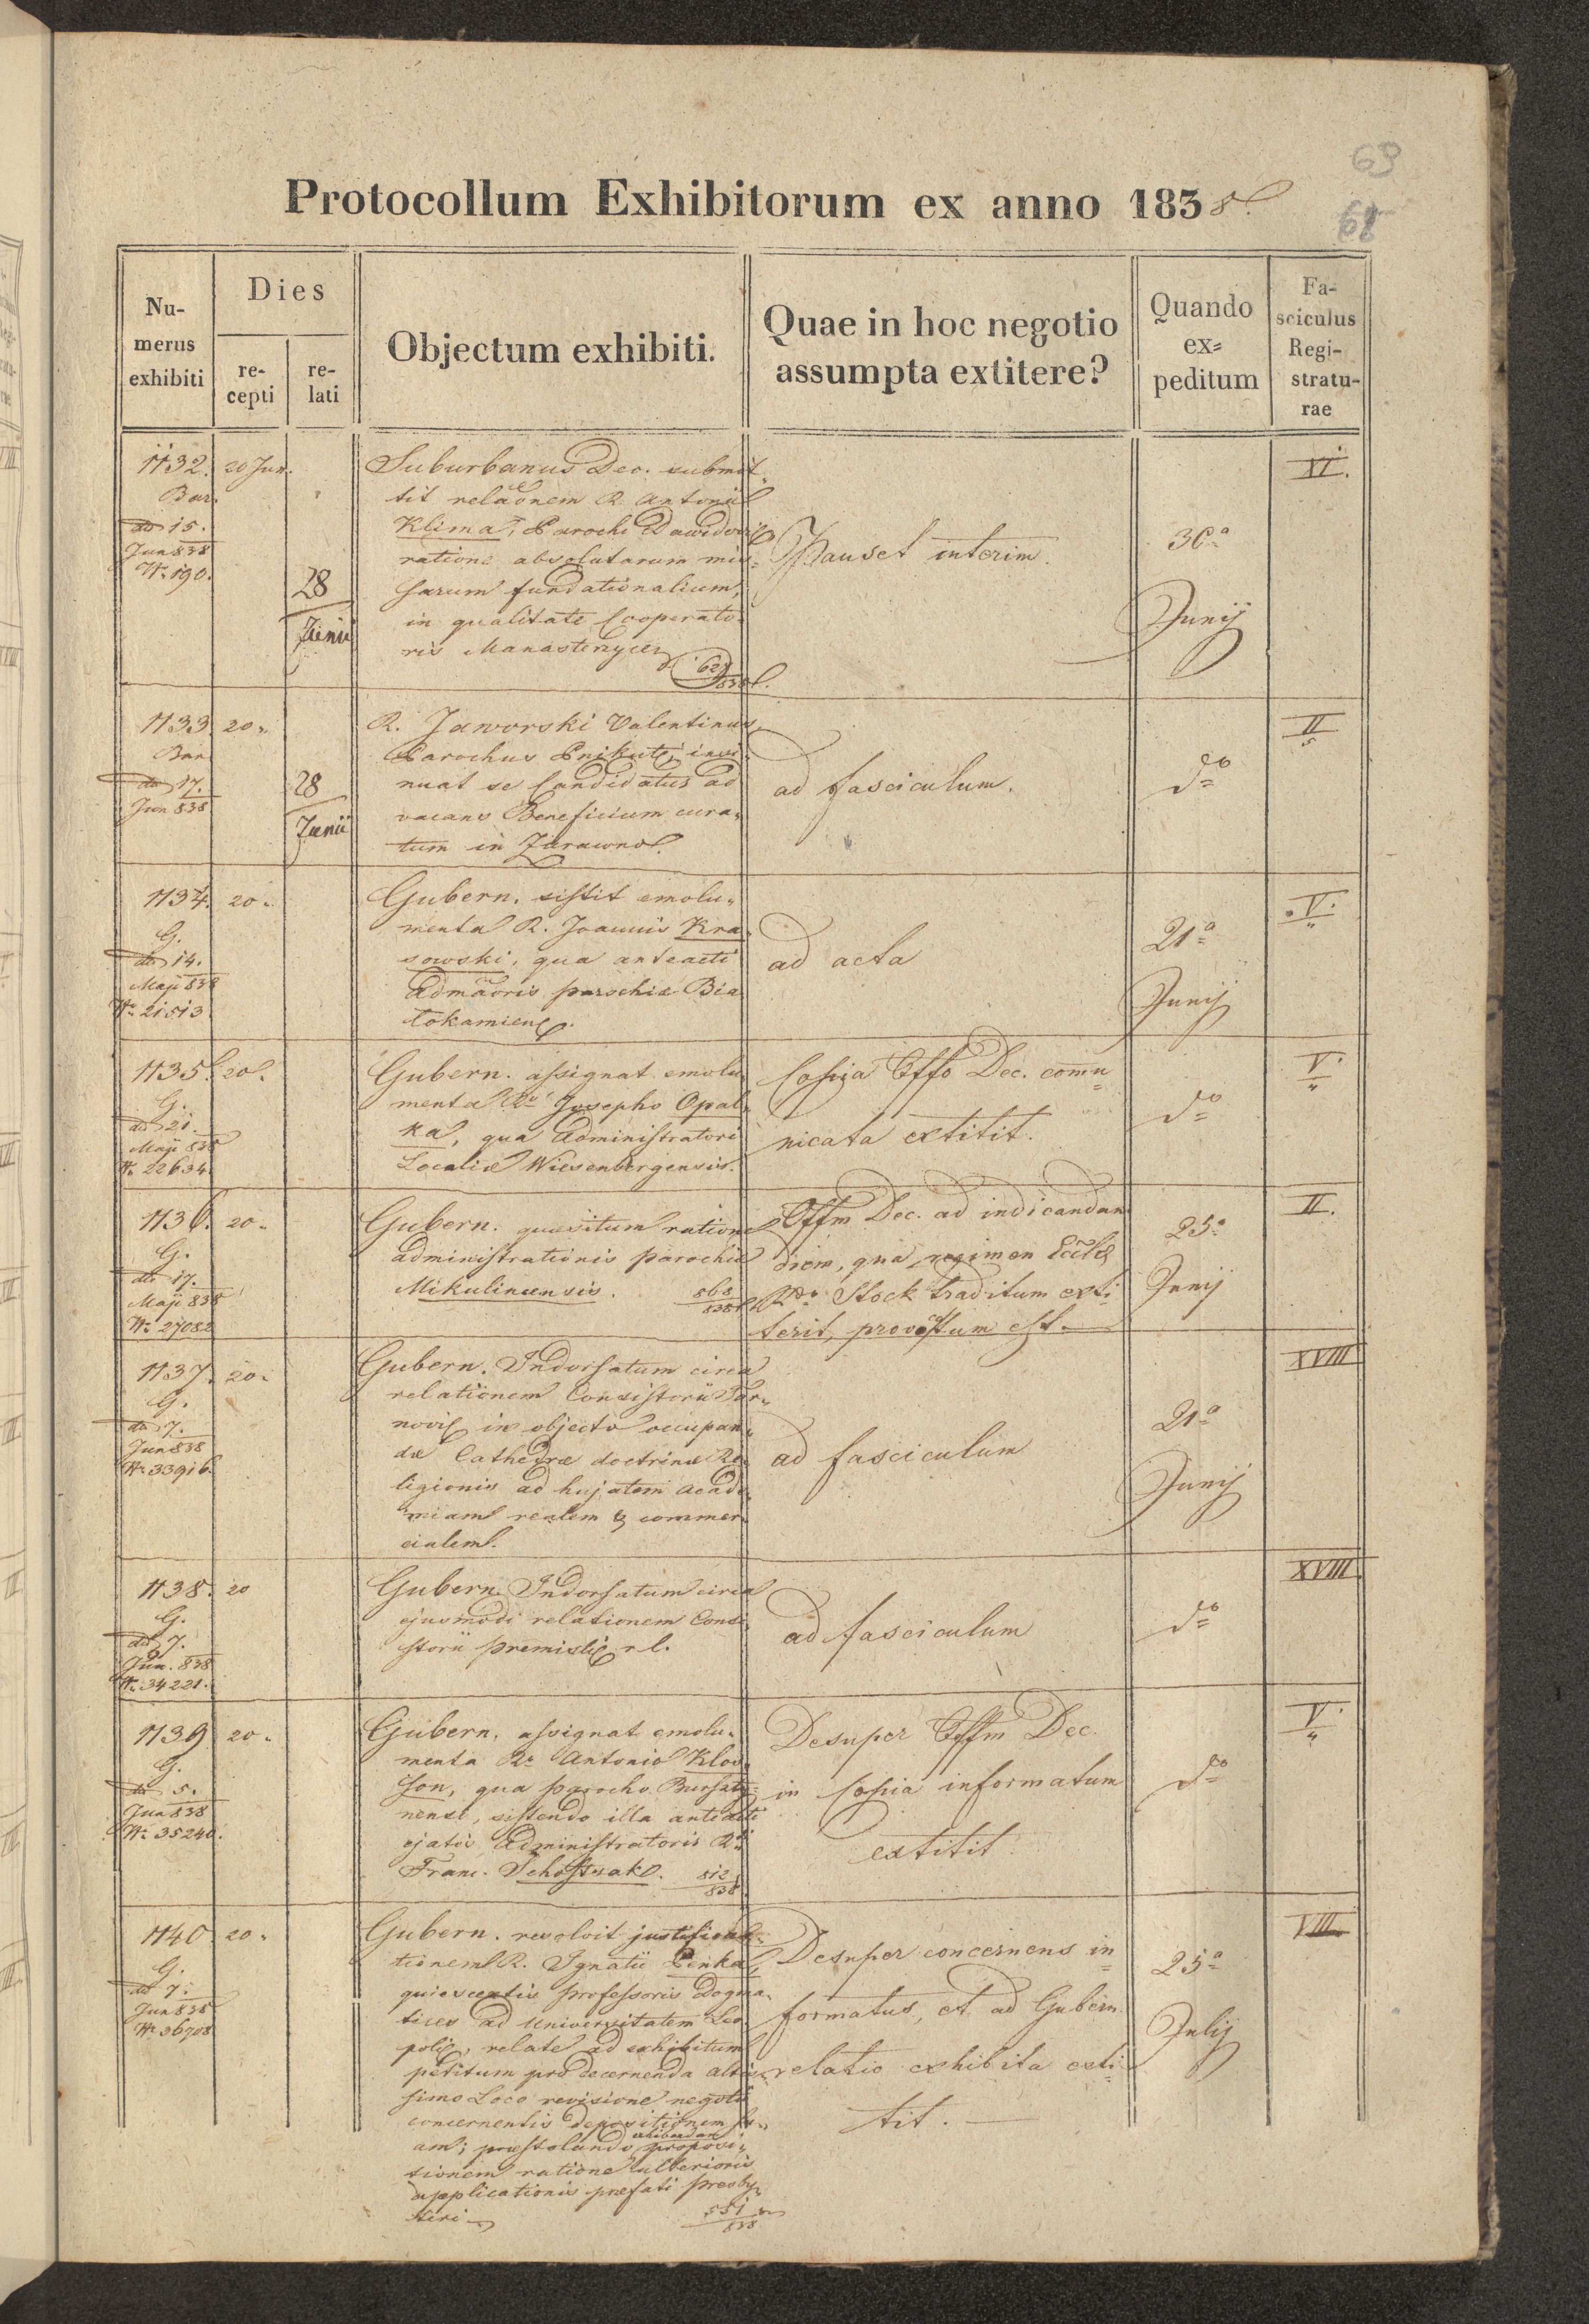 69
61
Protocollum Exhibitorum ex anno 1838.
Nu-
merus
exhibiti
Dies
re-
cepti
re-
lati
Objectum exhibiti.
Quae in hoc negotio
assumpta extitere?
Quando
ex=
peditum
Fa-
sciculus
Regi-
stratu-
rae
1132. 20 Jun.
Bar.
dto 15.
Jun 838
Nr. 190.
28
Junii
Suburbanus Dec. submit„
tit relaõnem R. Antonii
Klima, Parochi Dawidovi
ratione absolutarum mis„
sarum fundationalium,
in qualitate Cooperato„
ris Manasterzycen
838.
Pauset interim.
30a
Junij
XI.
1133. 20„
Bar.
dto 17.
Jun 838
28
Junii
R. Jaworski Valentinus,
Parochus Pnikuti, insi„
nuat se Candidatus ad
vacans Beneficium cura„
tum in Zurawno.
ad fasciculum.
do
II
5
1134. 20„
G.
dto 14.
Maji 838
Nr. 21513
Gubern. sistit emolu„
menta R. Joannis Kra„
sowski, qua anteacti
Admãoris parochiæ Bia„
tokamien.
ad acta
21a
Junij
V.
1135. 20.
G.
dto 21.
Maji 838
Nr. 22634.
Gubern. assignat emolu„
menta Rdo Josepho Opal„
ka, qua Administratori
Localiæ Wiesenbergensis.
Copia Offo Dec. comu„
nicata extitit.
do
V.
1136. 20„
G.
dto 17.
Maji 838
Nr. 27082
Gubern. quæsitum ratione
administrationis parochiæ
Mikulincensis. 568
838
Offm Dec. ad indicandam
diem, qua regimen Eccles
Rdo Stock traditum exti„
terit, provocatum est.
25a
Junij
II.
1137. 20„
G.
dto 7.
Jun 838
Nr. 33916.
Gubern. Indorsatum circa
relationem Consistorii Tar„
novi in objecto occupan„
dæ Cathedræ doctrinæ Re„
ligionis ad hujatem acade„
miam realem & commer„
cialem.
ad fasciculum
21a
Junij
XVIII
1138. 20
G.
dto 7.
Jun. 838
Nr. 34221.
Gubern. Indorsatum circa
ejusmodi relationem Consi„
storii premisli r. l.
ad fasciculum
do
XVIII
1139 20„
G.
dto 5.
Jun 838
Nr. 35240.
Gubern. assignat emolu„
menta Rdo Antonio Klos„
son, qua parocho Bursaty„
nensi, sistendo illa anteacti
ejatis Administratoris Rdi
Franc. Schostsak. 812
838
Desuper Offm Dec.
in Copia informatum
extitit
do
V.
1140 20„
G.
dto 7.
Jun 838
Nr. 36708
Gubern. resolvit justifica„
tionem R. Ignatii Penka,
quiescentis professoris Dogma„
tices ad Universitatem Leo„
poli, relate ad exhibitum
petitum pro decernenda altis„
simo Loco revisione negotii
concernentis depositionem su„
am; præstolando exhibendam proposi„
tionem ratione ulterioris
applicationis præfati presby„
teri
551
838
Desuper concernens in„
formatus, et ad Gubern.
relatio exhibita exti„
tit.
25a
Julij
VIII